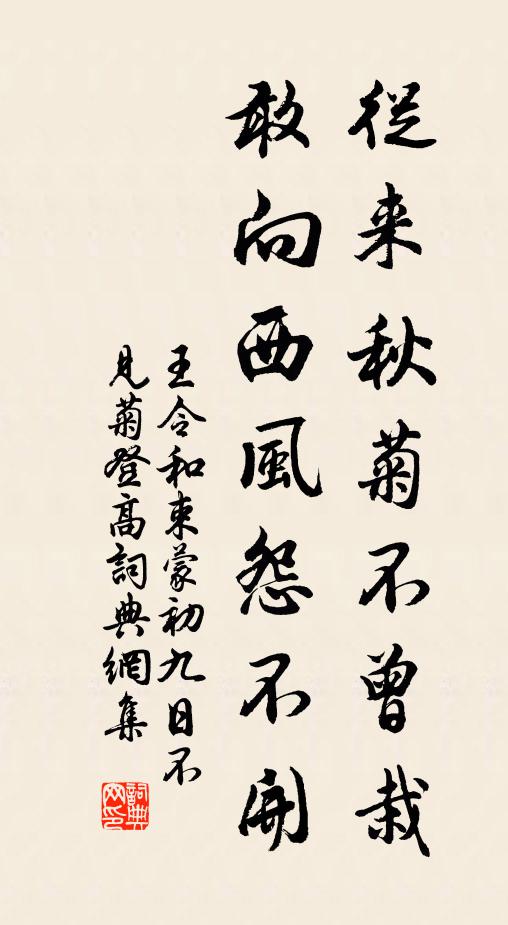 從来秋菊不曾栽
敢向西風怨不開
王令和束蒙初九日不
見菊登高詞典網集
詞典
网印